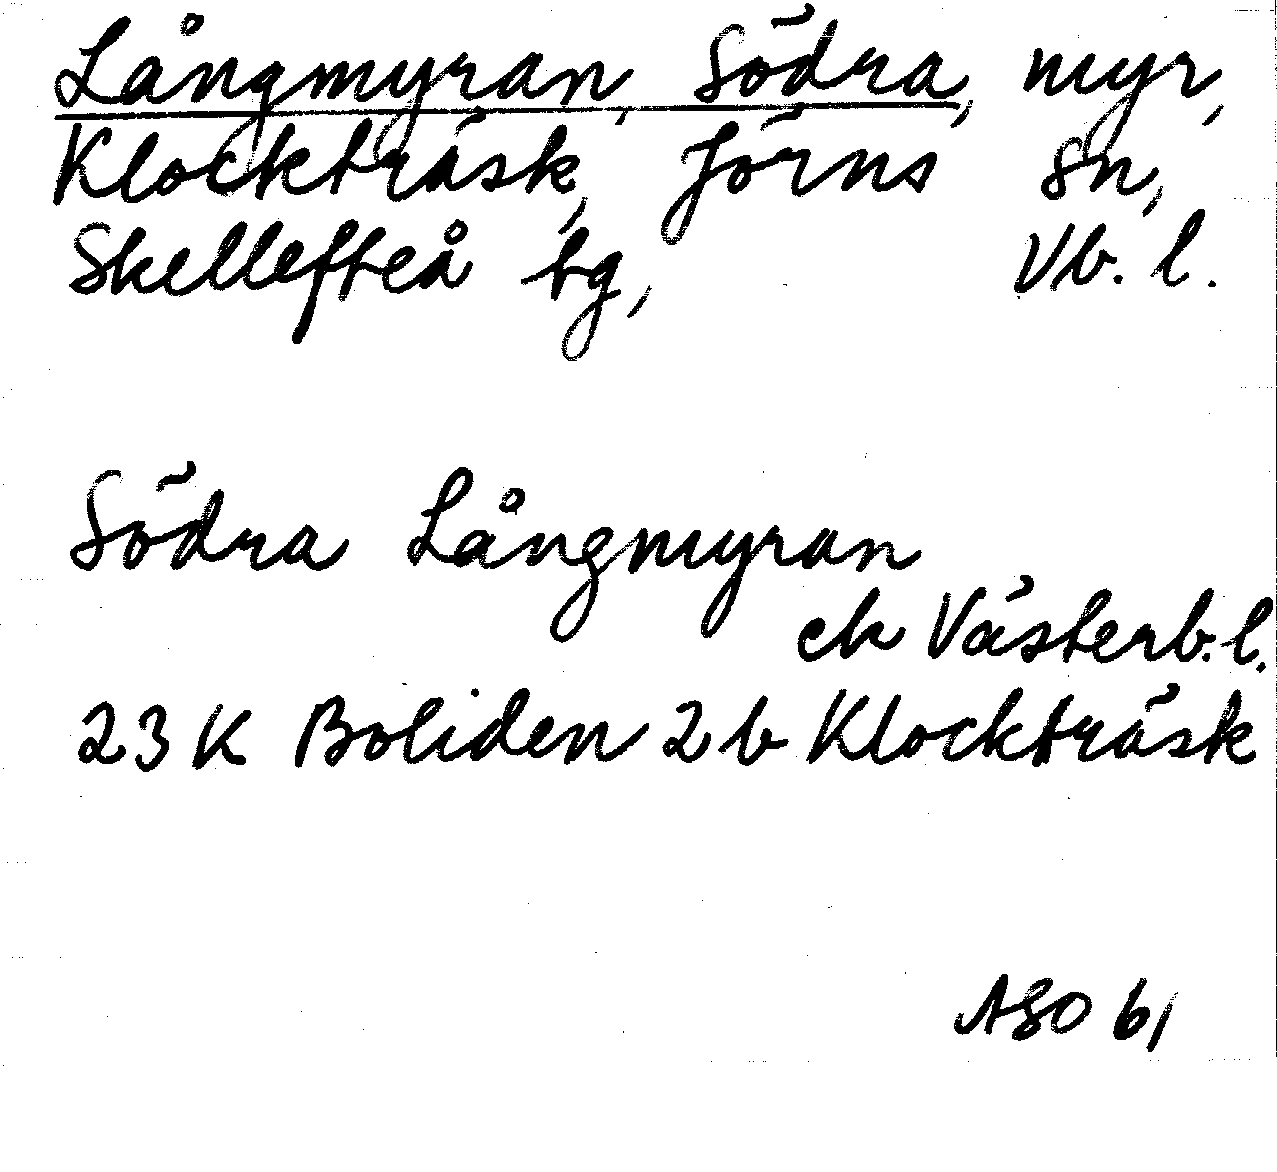 Långmyran, Södra, myr,
Klockträsk, Jörns sn,
Skellefteå tg, Vb. l.
Södra Långmyran
ek Västerb. l.
23 K Boliden 2 b Klockträsk
ASO 61